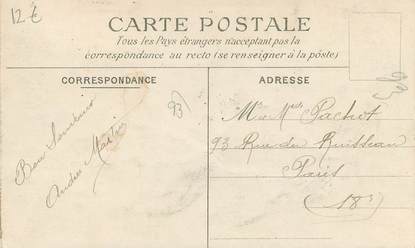 12 €
CARTE POSTALE
Tous les Pays étrangers n'acceptant pas la
correspondance au recto (se renseigner à la poste)
CORRESPONDANCE
ADRESSE
93
Bon Souvenir
André Martin
Mr et Mme Pachot
93 Rue du Ruisseau
Paris
(18e)